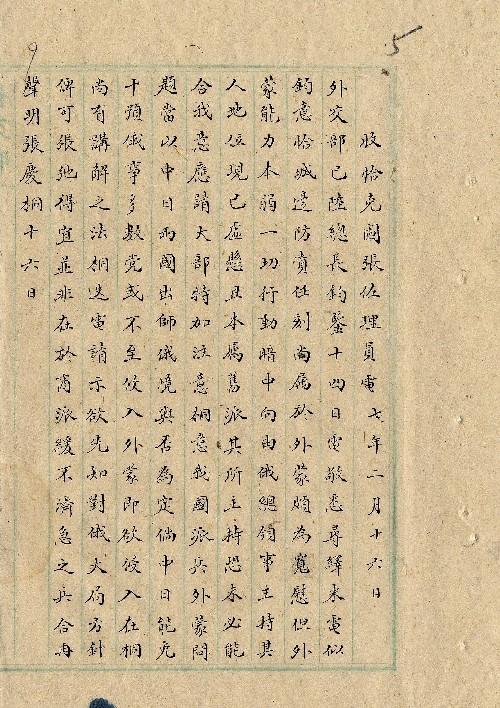 5
收恰克圖張佐理員電七年二月十六日
外交部已陸總長鈞鑒十四日電敬悉尋繹來電似
鈞意恰城邊防責任刻尚屬於外蒙頗為寬慰但外
蒙能力本弱一切行動暗中向由俄總領事主持其
人地位現已虛懸且本屬舊派其所主持恐未必能
合我意應請大部特加注意桐意我國派兵外蒙問
題當以中日兩國出師俄境與否為定倘中日能允
干預俄事多數党或不至侵入外蒙即欲侵入在桐
尚有講解之法桐迭電請示欲先知對俄大局方針
俾可張弛得宜並非在於商派緩不濟急之兵合再
聲明張慶桐十六日
9